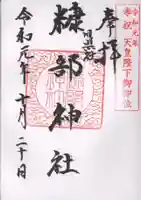 令和元年
奉祝 天皇陛下御即位
奉拝
糠部神社
令和元年十月二十日